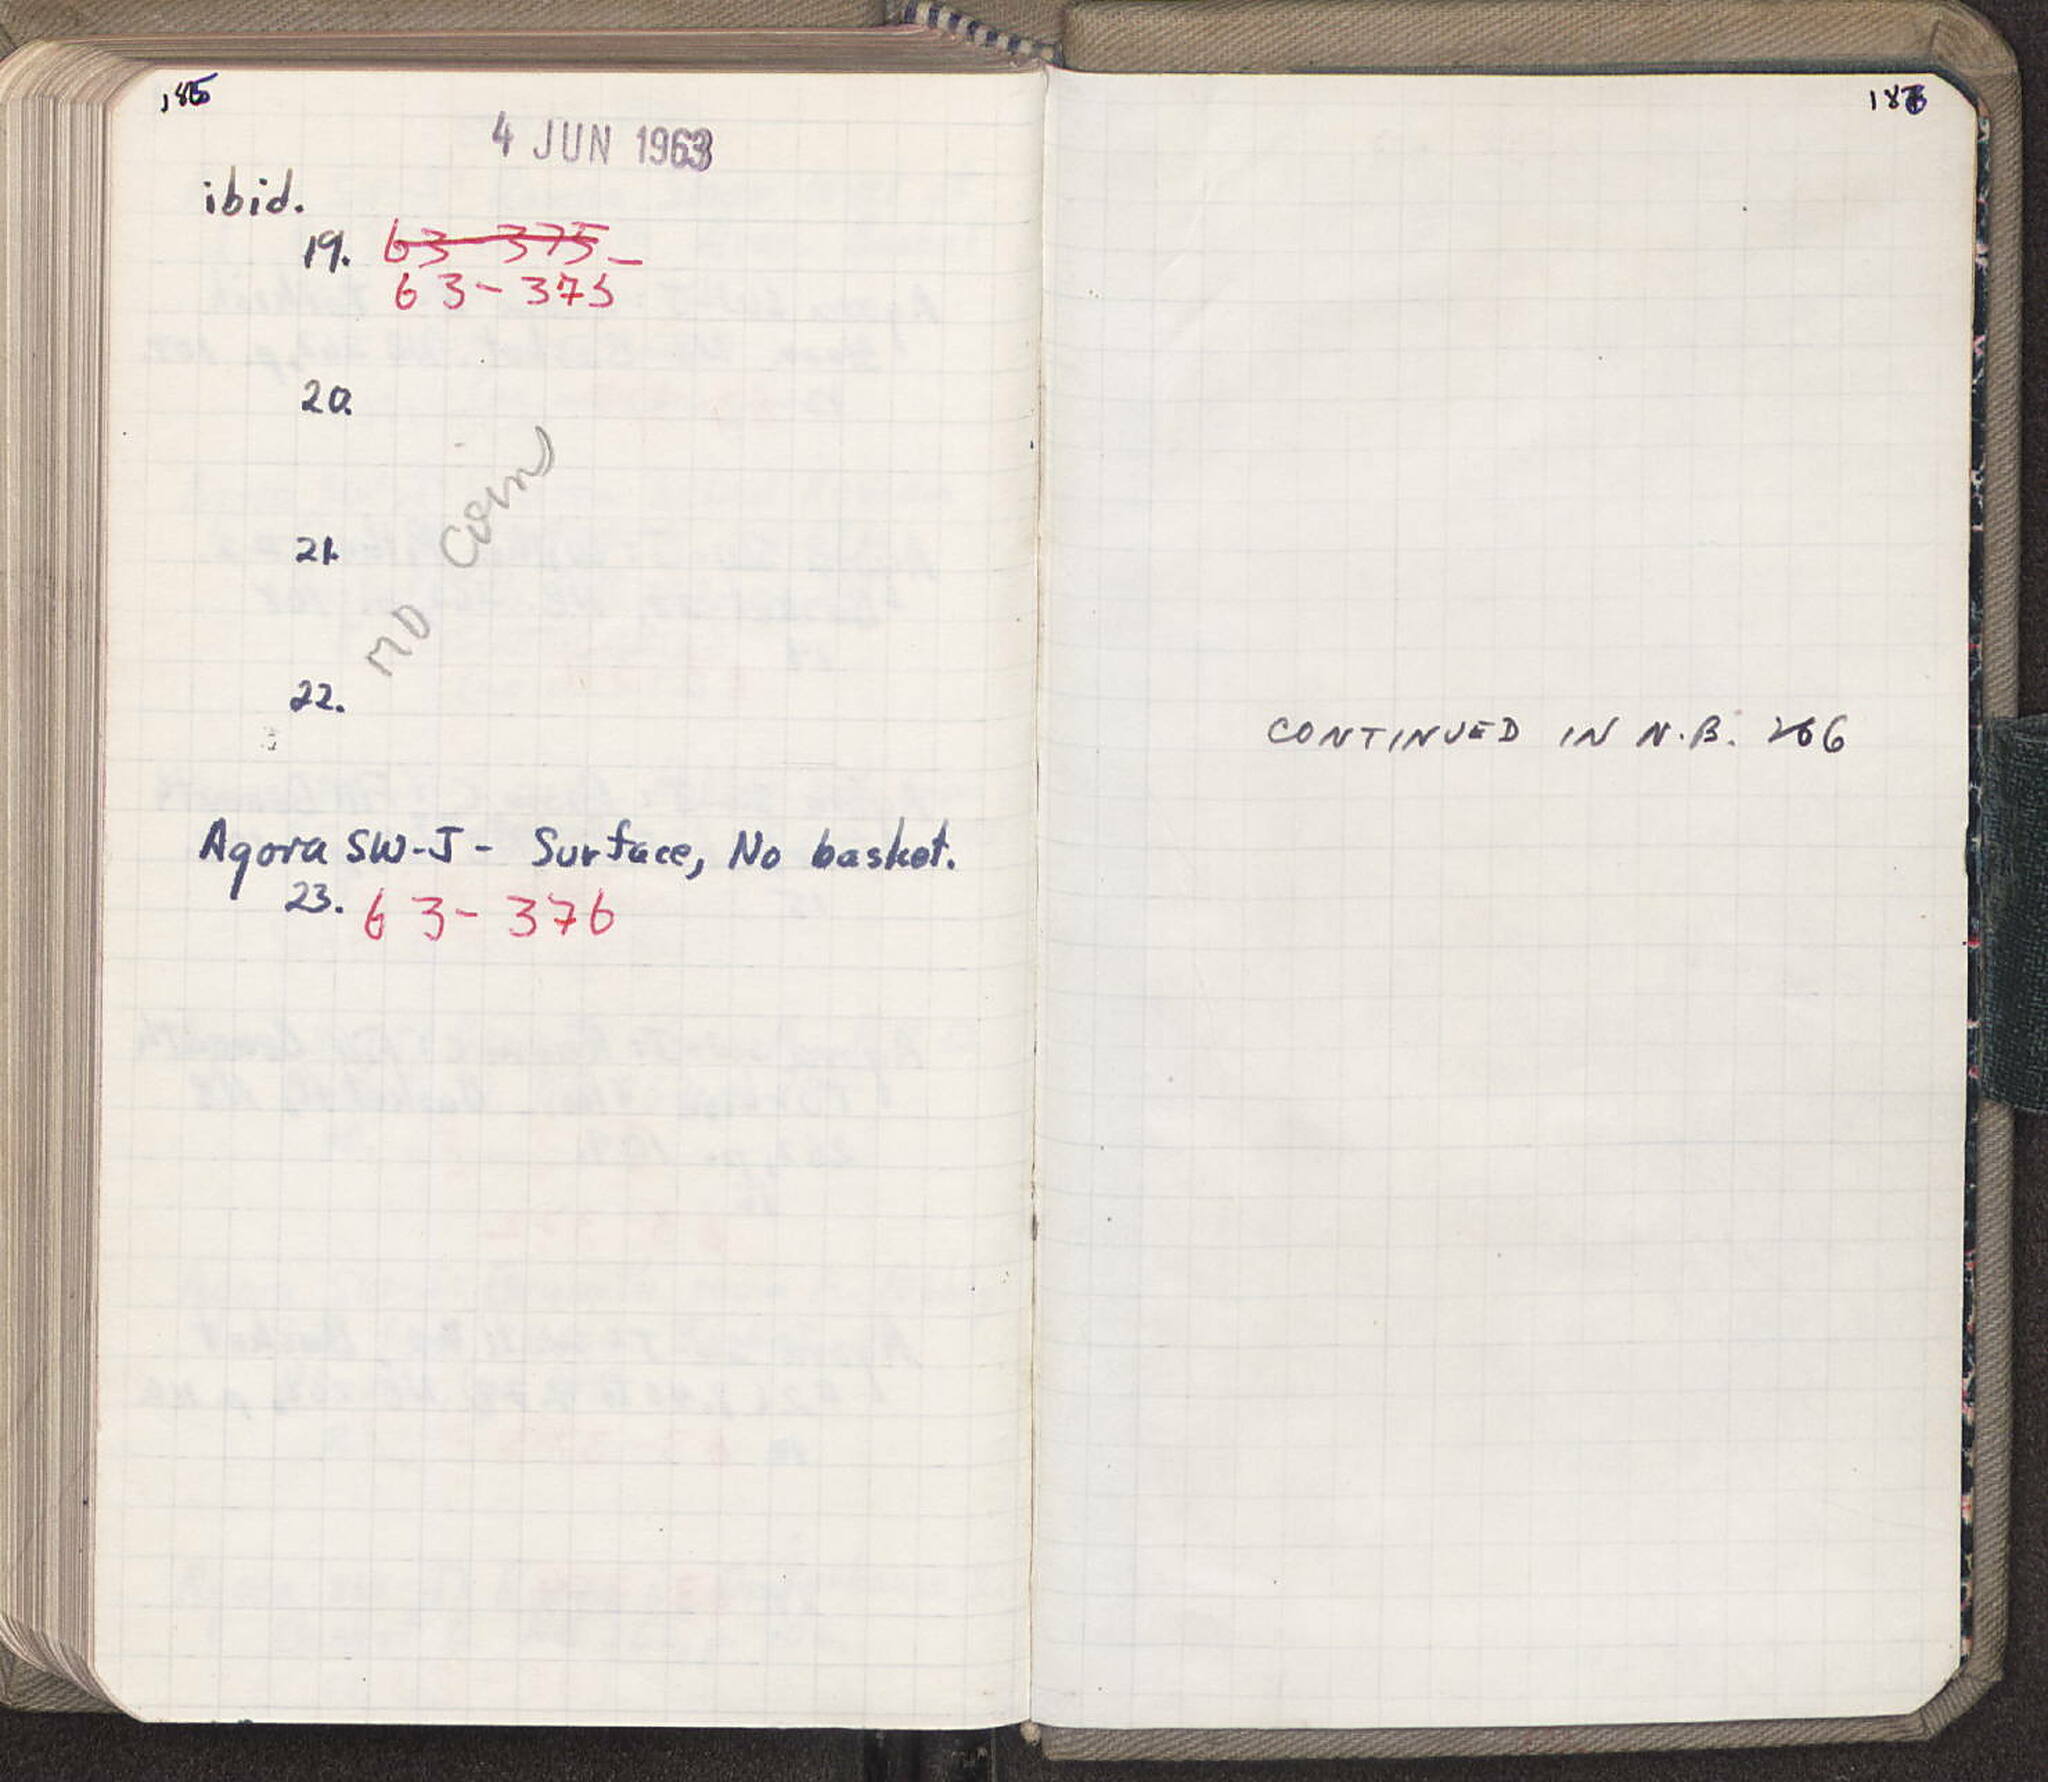 185
4 JUN 1963
ibid.
19. 63-375
63-375
20.
no coin
21.
22.
Agora SW-J - Surface, No basket.
23. 63-376
186
CONTINUED IN N.B. 266